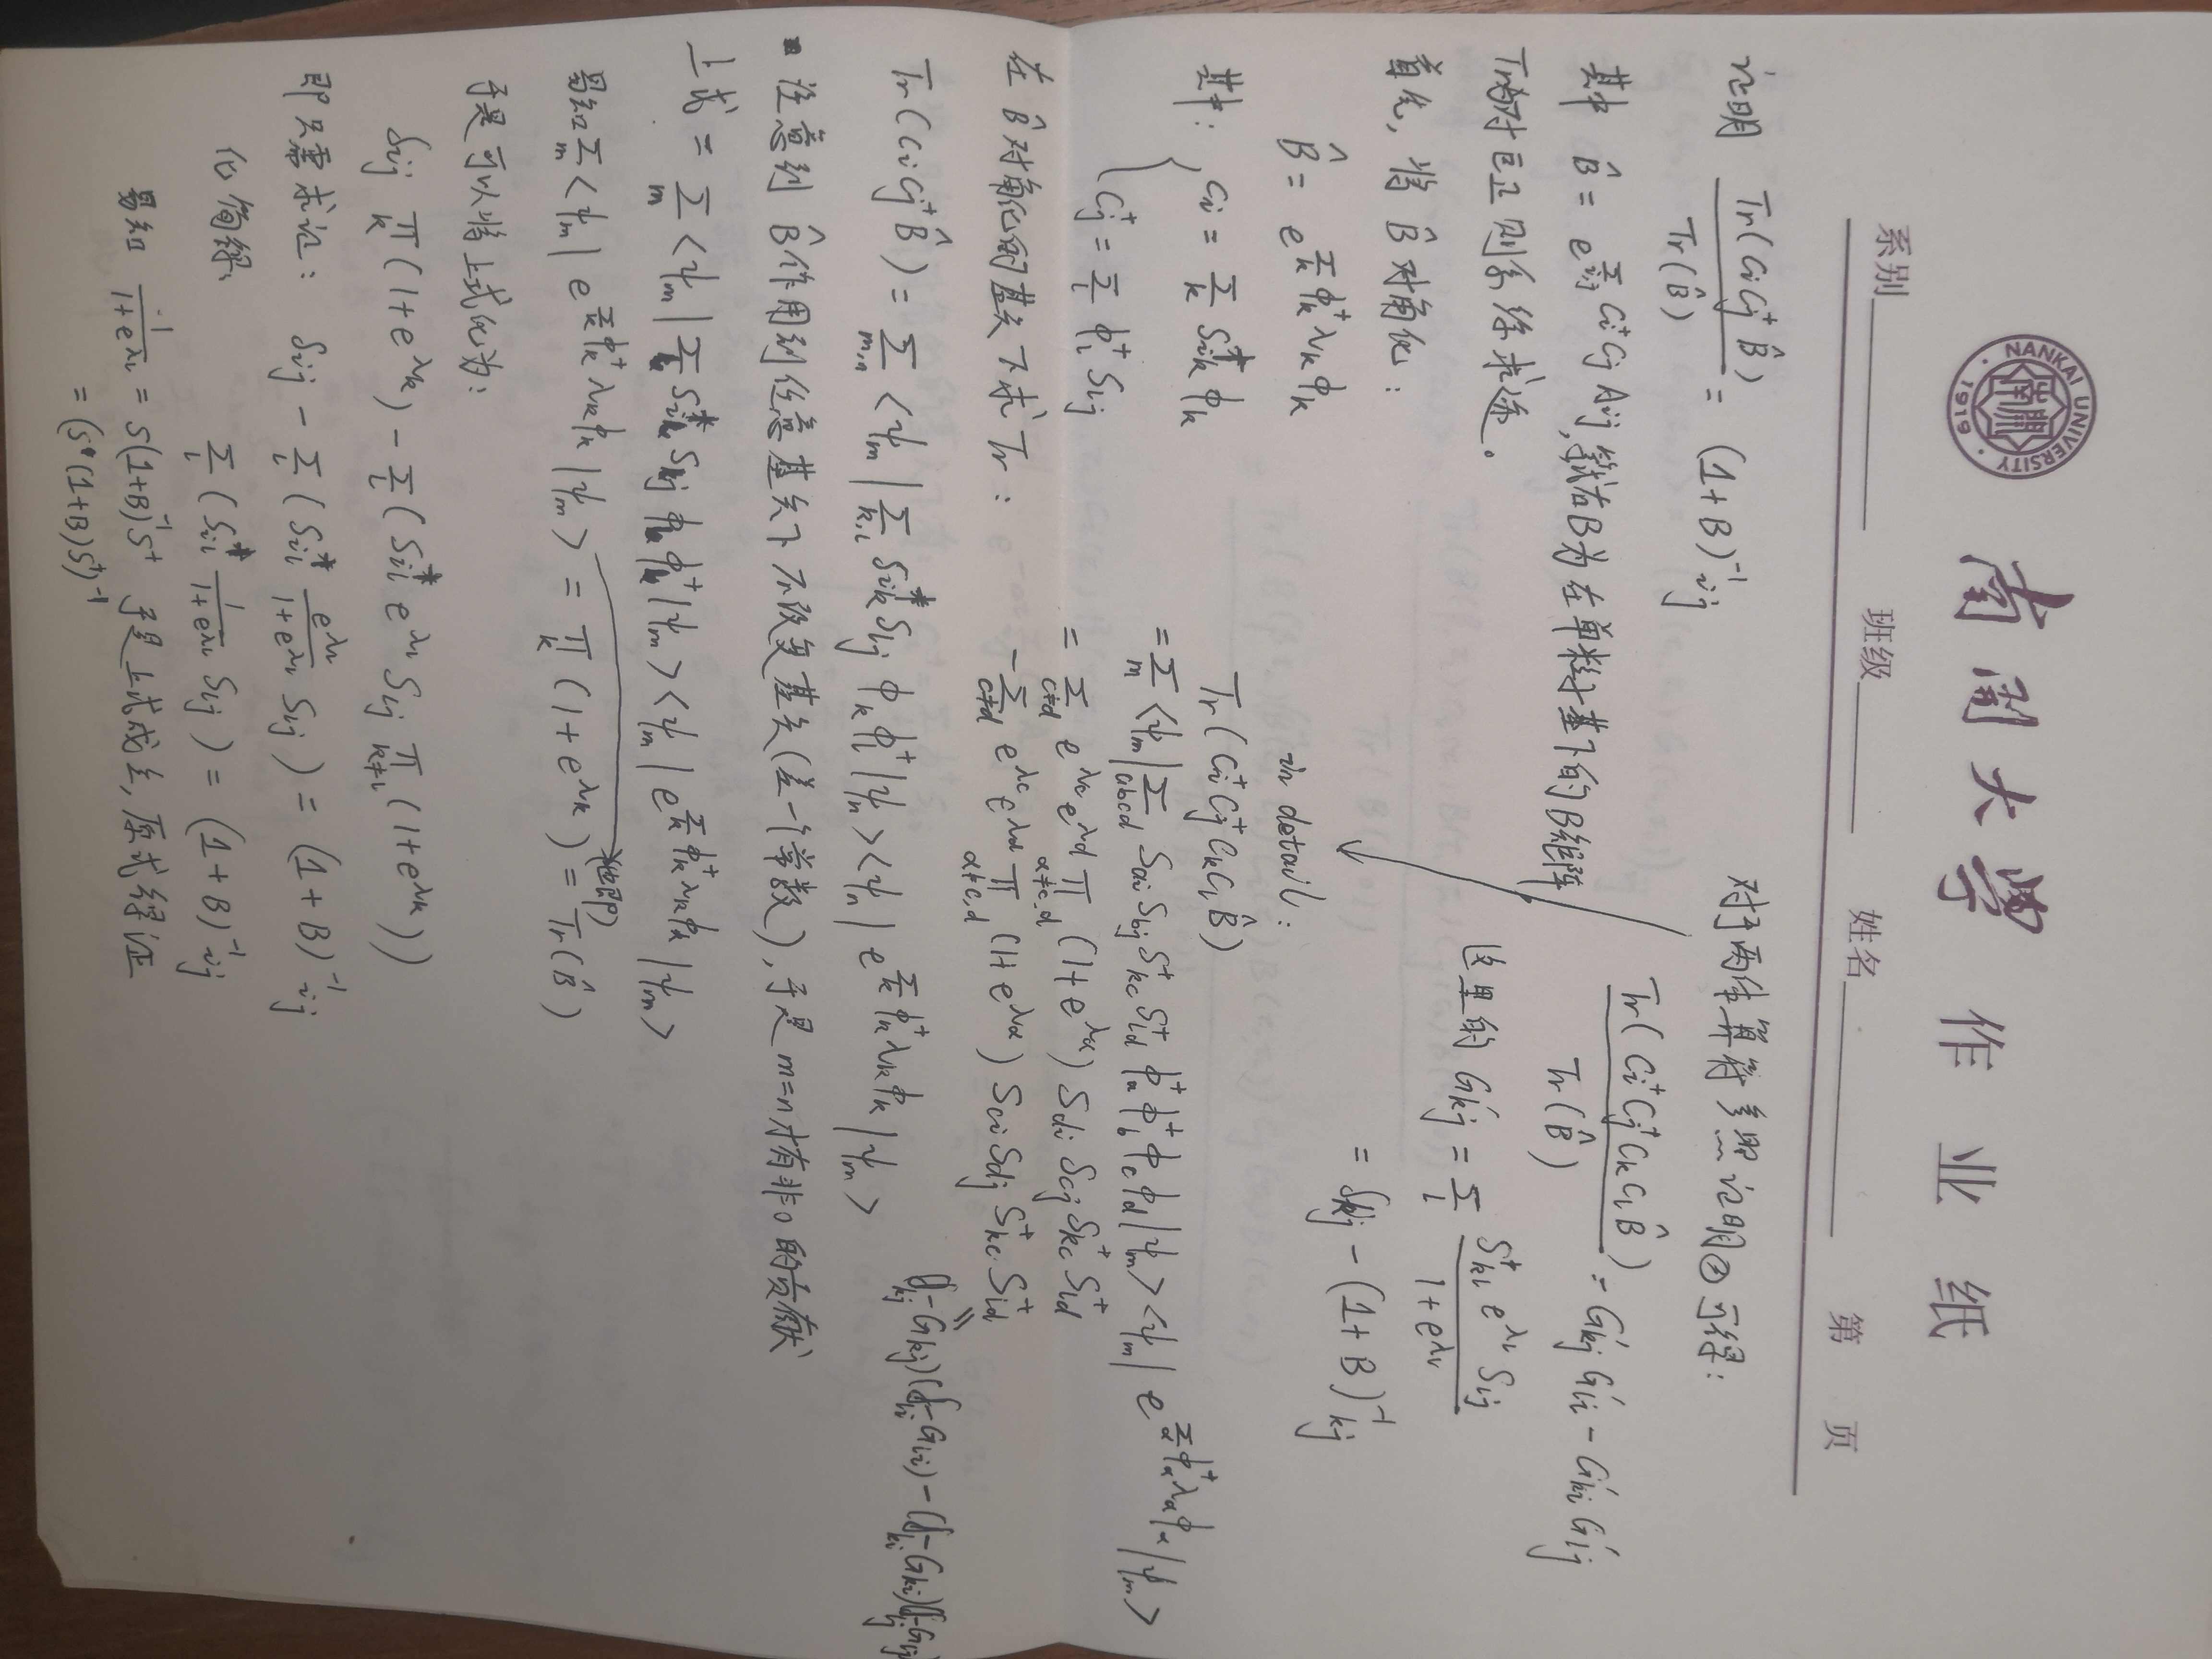 NANKAI UNIVERSITY
南開
1919
南開大學 作 业 纸
系别 班级 姓名 第 页
证明 Tr(c_i c_j^+ B̂) / Tr(B̂) = (1+B)^{-1}_{ij}
其中 B̂ = e^{Σ_{ij} c_i^+ c_j A_{ij}}, B为在单粒子基下的B矩阵
Tr为对巨正则系综求迹。
首先, 将 B̂ 对角化:
B̂ = e^{Σ_k φ_k^+ λ_k φ_k}
其中: c_i = Σ_k S_{ik}^+ φ_k
c_j^+ = Σ_l φ_l^+ S_{lj}
在 B̂ 对角化的基矢下求 Tr:
Tr(c_i c_j^+ B̂) = Σ_{m,n} <ψ_m | Σ_{k,l} S_{ik}^* S_{lj} φ_k φ_l^+ | ψ_n> <ψ_n | e^{Σ_k φ_k^+ λ_k φ_k} | ψ_m>
注意到 B̂ 作用到任意基矢下不改变基矢(差一个常数), 于是 m=n 才有非0的贡献
上式 = Σ_m <ψ_m | Σ_k S_{ik}^* S_{kj} φ_k φ_k^+ | ψ_m> <ψ_m | e^{Σ_k φ_k^+ λ_k φ_k} | ψ_m>
易知 Σ_m <ψ_m | e^{Σ_k φ_k^+ λ_k φ_k} | ψ_m> = Π_k (1+e^{λ_k}) (也即) = Tr(B̂)
于是可以将上式化为:
δ_{ij} Π_k (1+e^{λ_k}) - Σ_l (S_{il}^* e^{λ_l} S_{lj} Π_{k≠l} (1+e^{λ_k}))
即只需求证: δ_{ij} - Σ_l (S_{il}^* e^{λ_l}/(1+e^{λ_l}) S_{lj}) = (1+B)^{-1}_{ij}
化简得: Σ_l (S_{il}^* 1/(1+e^{λ_l}) S_{lj}) = (1+B)^{-1}_{ij}
易知 1/(1+e^{λ_l}) = S(1+B)^{-1}S^+ 于是上式成立, 原式得证
= (S(1+B)S^+)^{-1}
对于两体算符参照证明② 可得:
Tr(c_i^+ c_j^+ c_k c_l B̂) / Tr(B̂) = G'_{kj} G'_{li} - G'_{ki} G'_{lj}
这里的 G'_{kj} = Σ_l S_{kl}^+ e^{λ_l} S_{lj} / (1+e^{λ_l})
= δ_{kj} - (1+B)^{-1}_{kj}
in detail:
Tr(c_i^+ c_j^+ c_k c_l B̂)
= Σ_m <ψ_m | Σ_{abcd} S_{ai} S_{bj} S_{kc}^+ S_{ld}^+ φ_a^+ φ_b^+ φ_c φ_d | ψ_m> <ψ_m | e^{Σ_α φ_α^+ λ_α φ_α} | ψ_m>
= Σ_{c≠d} e^{λ_c} e^{λ_d} Π_{α≠c,d} (1+e^{λ_α}) S_{di} S_{cj} S_{kc}^+ S_{ld}^+
- Σ_{c≠d} e^{λ_c} e^{λ_d} Π_{α≠c,d} (1+e^{λ_α}) S_{ci} S_{dj} S_{kc}^+ S_{ld}^+
= (δ_{kj}-G_{kj})(δ_{li}-G_{li}) - (δ_{ki}-G_{ki})(δ_{lj}-G_{lj}